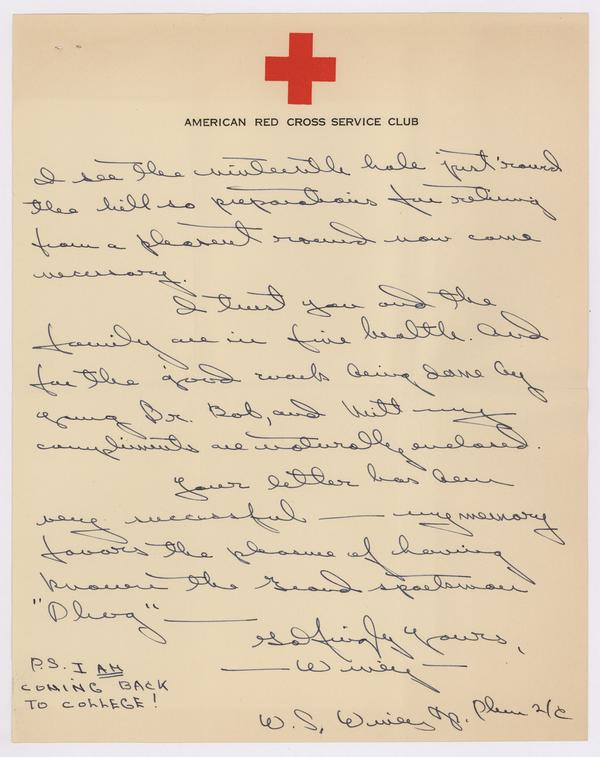 AMERICAN RED CROSS SERVICE CLUB
I see the nineteenth hole just 'round
the hill so preparations for retiring
from a pleasent round now come
necessary.
I trust you and the
family are in fine health. And
for the good work being done by
young Dr. Bob, and Mitt my
compliments are naturally enclosed.
Your letter has been
very successful — my memory
favors the pleasure of having
known the grand sportsman
"Dhwg" —
Golfingly Yours,
— Winey —
W. S. Winey Sp. 2/c
P.S. I AM
COMING BACK
TO COLLEGE!